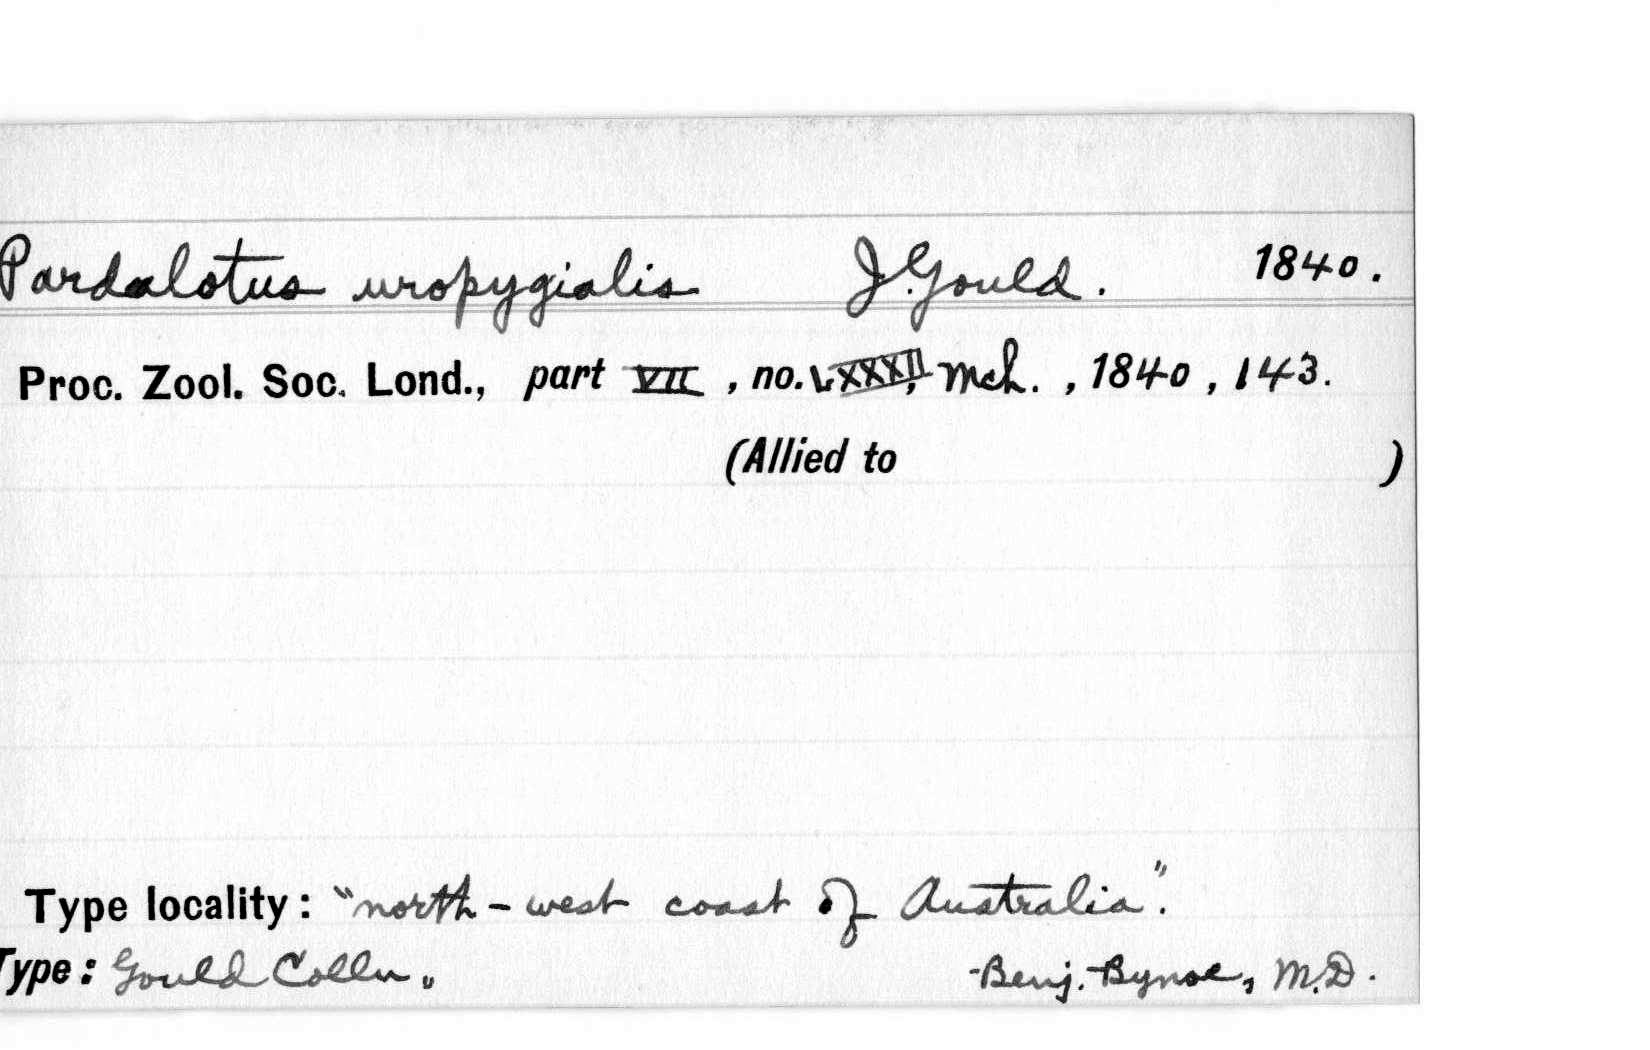 Pardalotus uropygialis J. Gould. 1840.
Proc. Zool. Soc. Lond., part VII, no. LXXXII, Mch., 1840, 143.
(Allied to )
Type locality: "north-west coast of Australia".
Type: Gould Colln. Benj. Bynoe, M.D.